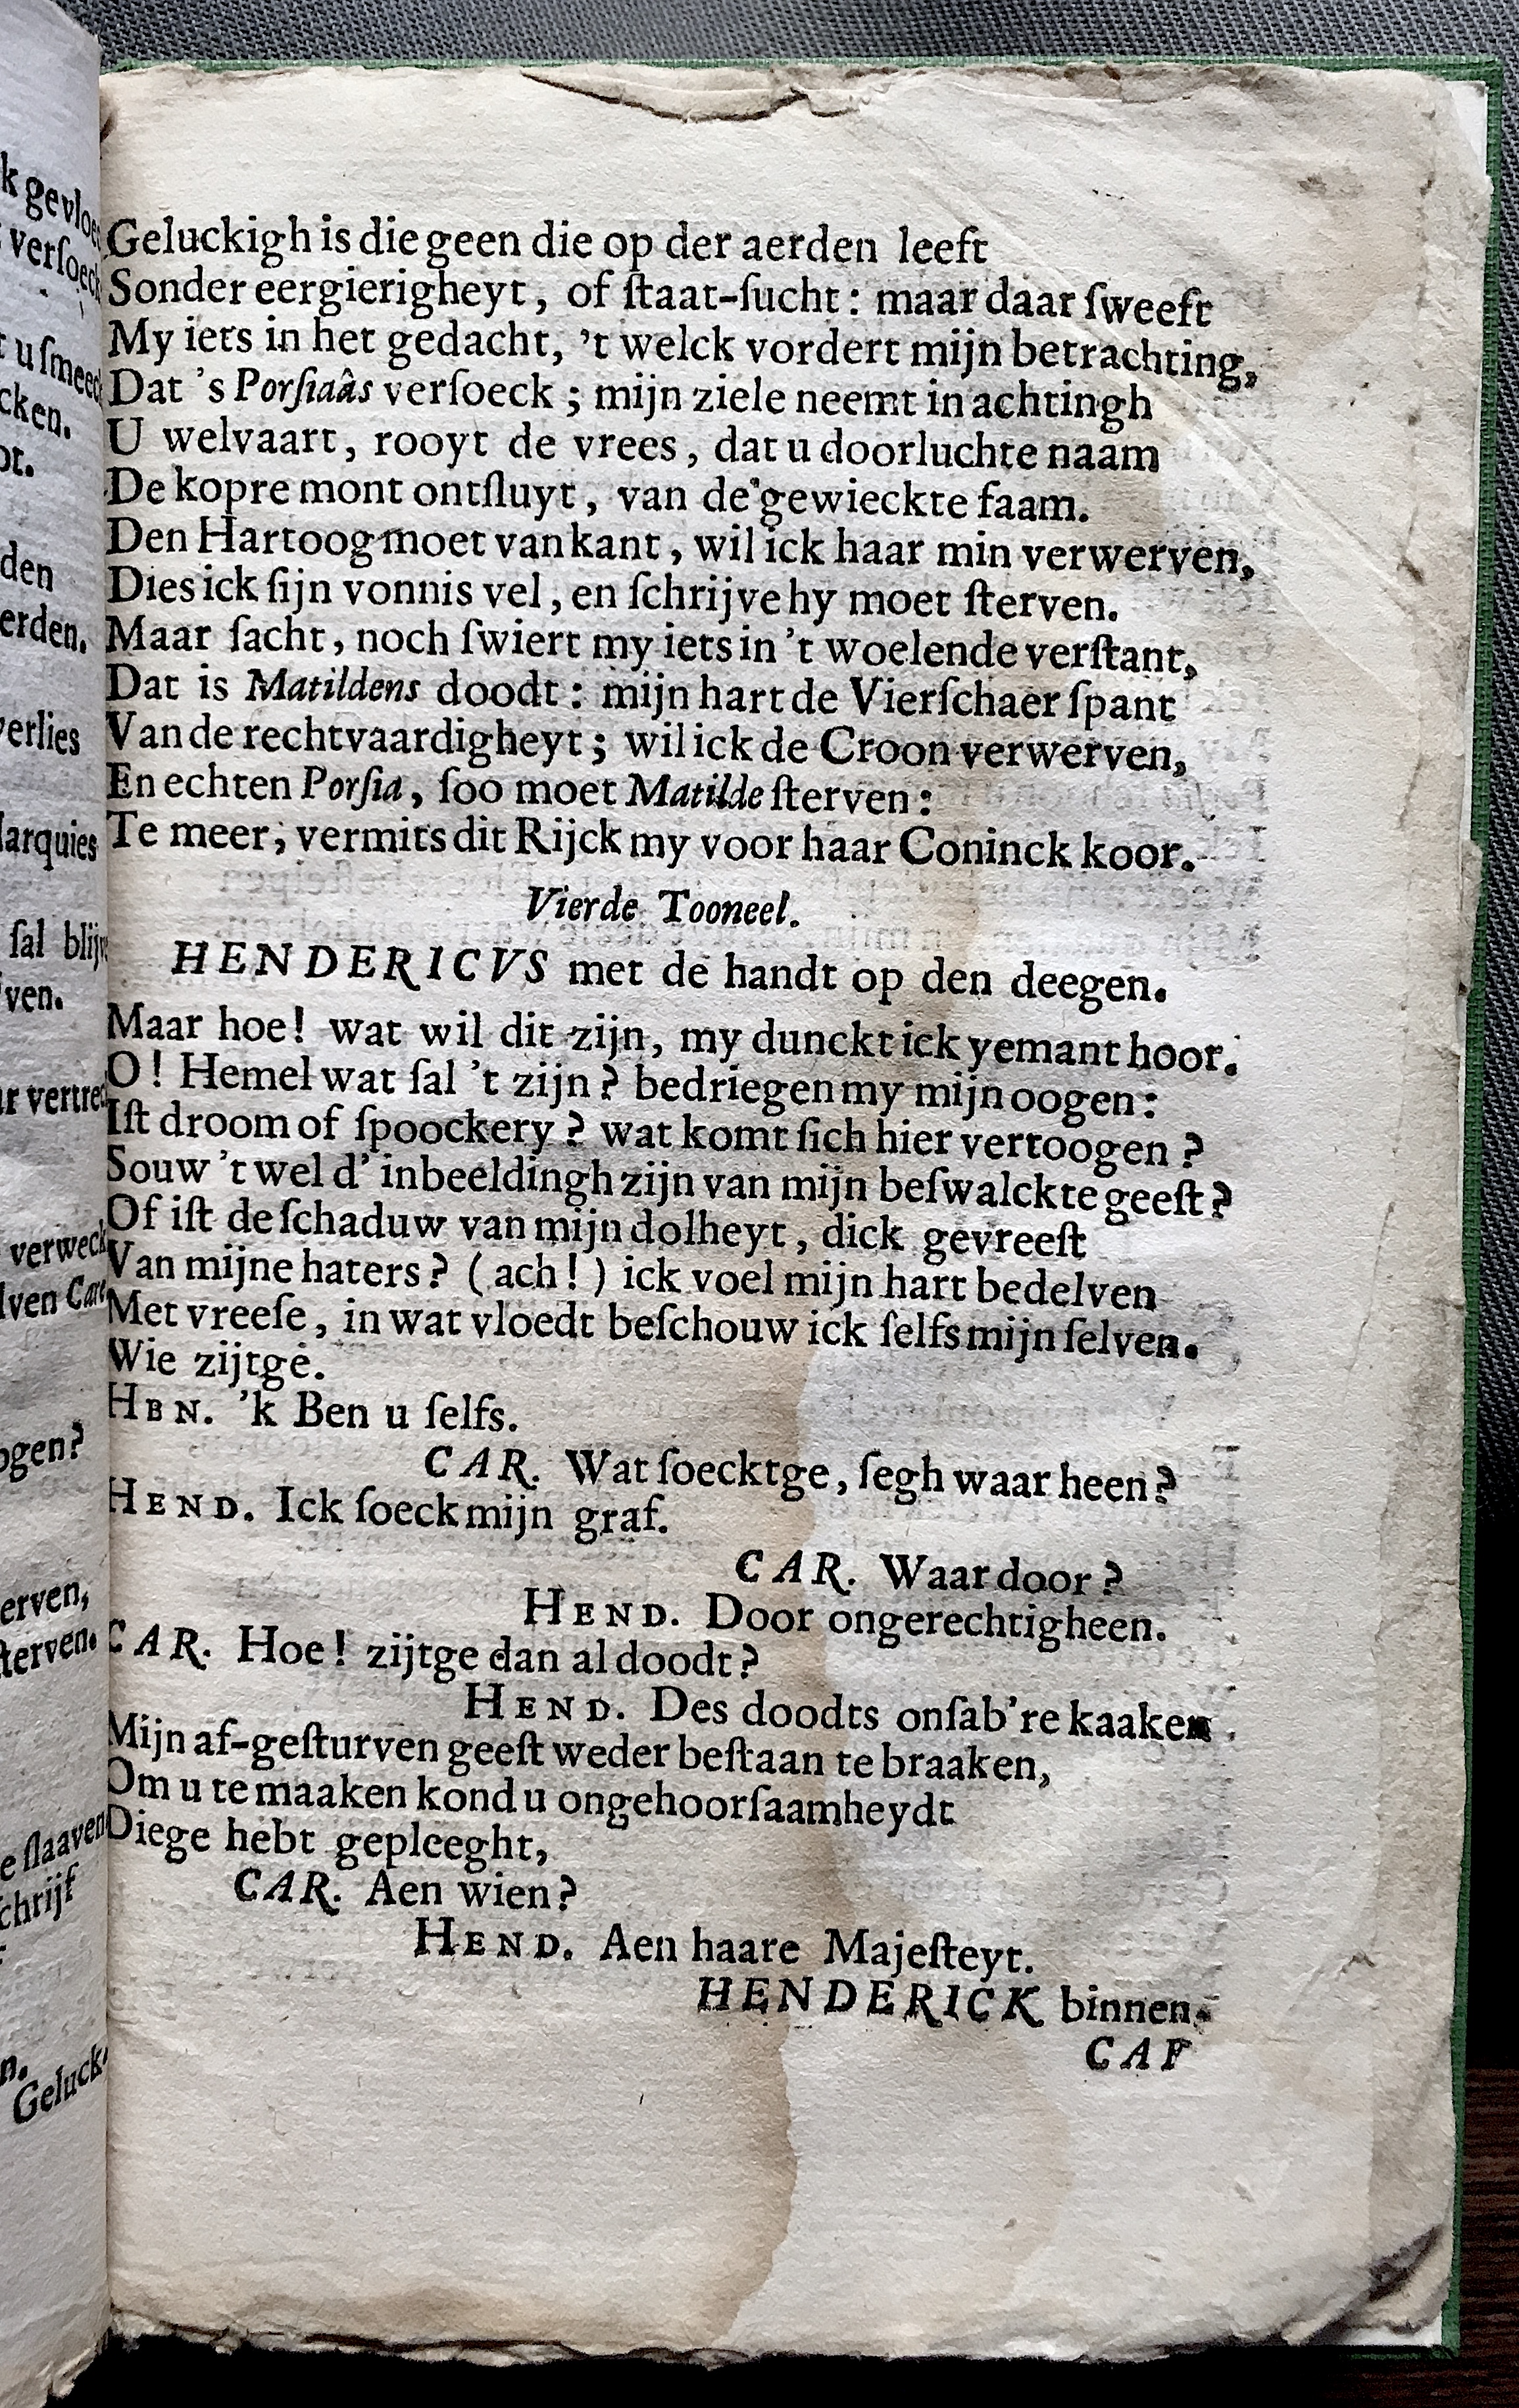 k gevloe
verſoeck
t u ſmeec
cken.
ot.
den
erden.
verlies
arquies
ſal blijv
ven.
ar vertrec
verweck
lven Car
ogen?
erven,
ſterven.
e ſlaaven
ſchrijf
n.
Geluck-
Geluckigh is die geen die op der aerden leeft
Sonder eergierigheyt, of ſtaat-ſucht: maar daar ſweeft
My iets in het gedacht, 't welck vordert mijn betrachting,
Dat 's Porſiaâs verſoeck; mijn ziele neemt in achtingh
U welvaart, rooyt de vrees, dat u doorluchte naam
De kopre mont ontſluyt, van de gewieckte faam.
Den Hartoog moet van kant, wil ick haar min verwerven,
Dies ick ſijn vonnis vel, en ſchrijve hy moet ſterven.
Maar ſacht, noch ſwiert my iets in 't woelende verſtant,
Dat is Matildens doodt: mijn hart de Vierſchaer ſpant
Van de rechtvaardigheyt; wil ick de Croon verwerven,
En echten Porſia, ſoo moet Matilde ſterven:
Te meer, vermits dit Rijck my voor haar Coninck koor.
Vierde Tooneel.
HENDERICVS met de handt op den deegen.
Maar hoe! wat wil dit zijn, my dunckt ick yemant hoor.
O! Hemel wat ſal 't zijn? bedriegen my mijn oogen:
Iſt droom of ſpoockery? wat komt ſich hier vertoogen?
Souw 't wel d' inbeeldingh zijn van mijn beſwalckte geeſt?
Of iſt de ſchaduw van mijn dolheyt, dick gevreeſt
Van mijne haters? (ach!) ick voel mijn hart bedelven
Met vreeſe, in wat vloedt beſchouw ick ſelfs mijn ſelven.
Wie zijtge.
HBN. 'k Ben u ſelfs.
CAR. Wat ſoecktge, ſegh waar heen?
HEND. Ick ſoeck mijn graf.
CAR. Waar door?
HEND. Door ongerechtigheen.
CAR. Hoe! zijtge dan al doodt?
HEND. Des doodts onſab're kaaken
Mijn af-geſturven geeſt weder beſtaan te braaken,
Om u te maaken kond u ongehoorſaamheydt
Diege hebt gepleeght,
CAR. Aen wien?
HEND. Aen haare Majeſteyt.
HENDERICK binnen.
CAR